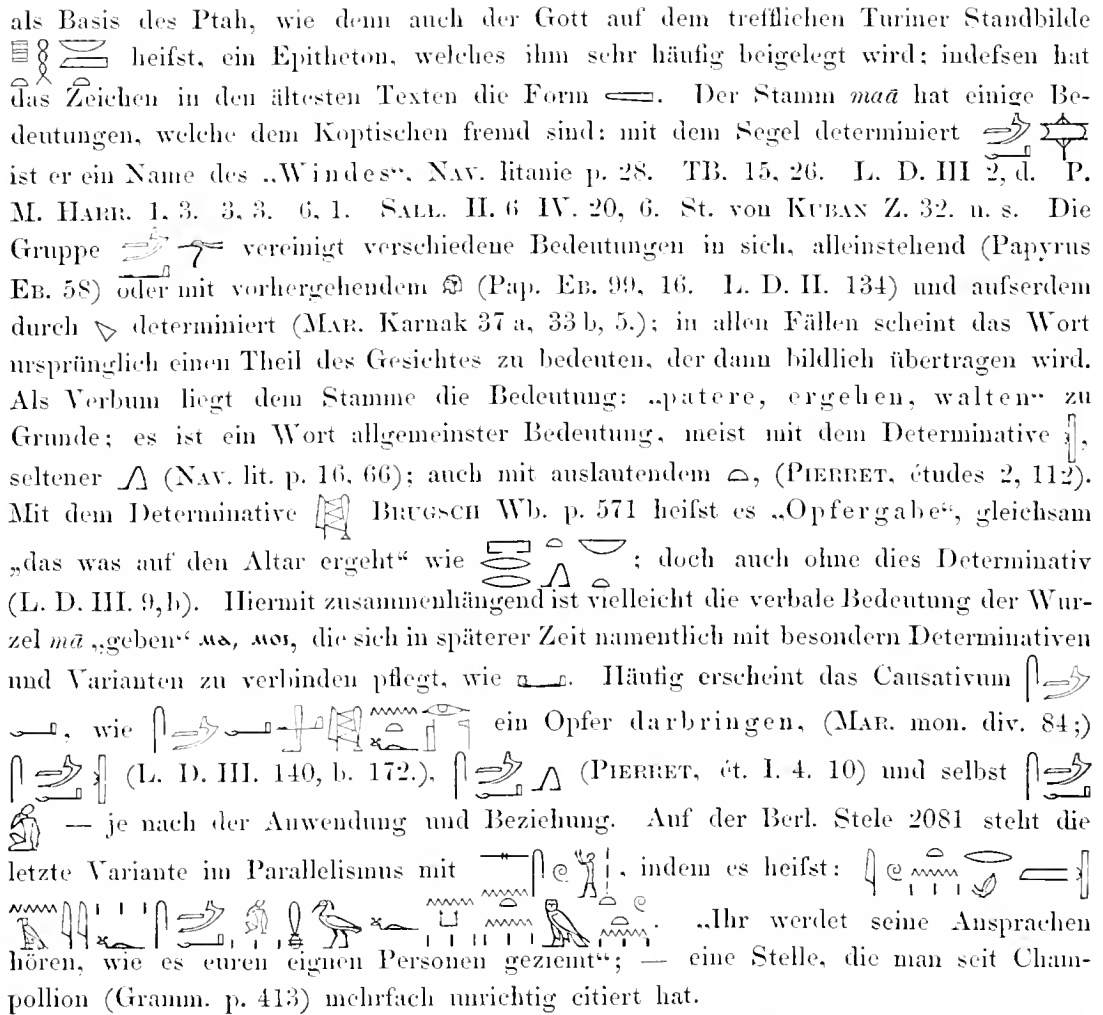 als Basis des Ptah, wie denn auch der Gott auf dem trefflichen Turiner Standbilde
heifst, ein Epitheton, welches ihm sehr häufig beigelegt wird; indefsen hat
das Zeichen in den ältesten Texten die Form . Der Stamm maā hat einige Be-
deutungen, welche dem Koptischen fremd sind: mit dem Segel determiniert
ist er ein Name des „Windes“. Nav. litanie p. 28. TB. 15, 26. L. D. III 2, d. P.
M. Harr. 1, 3. 3, 3. 6, 1. Sall. II. 6 IV. 20, 6. St. von Kuban Z. 32. u. s. Die
Gruppe vereinigt verschiedene Bedeutungen in sich, alleinstehend (Papyrus
Eb. 58) oder mit vorhergehendem (Pap. Eb. 99, 16. L. D. II. 134) und aufserdem
durch determiniert (Mar. Karnak 37 a, 33 b, 5.); in allen Fällen scheint das Wort
ursprünglich einen Theil des Gesichtes zu bedeuten, der dann bildlich übertragen wird.
Als Verbum liegt dem Stamme die Bedeutung: „patere, ergehen, walten“ zu
Grunde; es ist ein Wort allgemeinster Bedeutung, meist mit dem Determinative ,
seltener (Nav. lit. p. 16, 66); auch mit auslautendem , (Pierret, études 2, 112).
Mit dem Determinative Brugsch Wb. p. 571 heifst es „Opfergabe“, gleichsam
„das was auf den Altar ergeht“ wie ; doch auch ohne dies Determinativ
(L. D. III. 9, b). Hiermit zusammenhängend ist vielleicht die verbale Bedeutung der Wur-
zel mā „geben“ ⲙⲁ, ⲙⲟⲓ, die sich in späterer Zeit namentlich mit besondern Determinativen
und Varianten zu verbinden pflegt, wie . Häufig erscheint das Causativum
, wie ein Opfer darbringen, (Mar. mon. div. 84;)
(L. D. III. 140, b. 172.), (Pierret, ét. I. 4. 10) und selbst
— je nach der Anwendung und Beziehung. Auf der Berl. Stele 2081 steht die
letzte Variante im Parallelismus mit , indem es heifst:
. „Ihr werdet seine Ansprachen
hören, wie es euren eignen Personen geziemt“; — eine Stelle, die man seit Cham-
pollion (Gramm. p. 413) mehrfach unrichtig citiert hat.